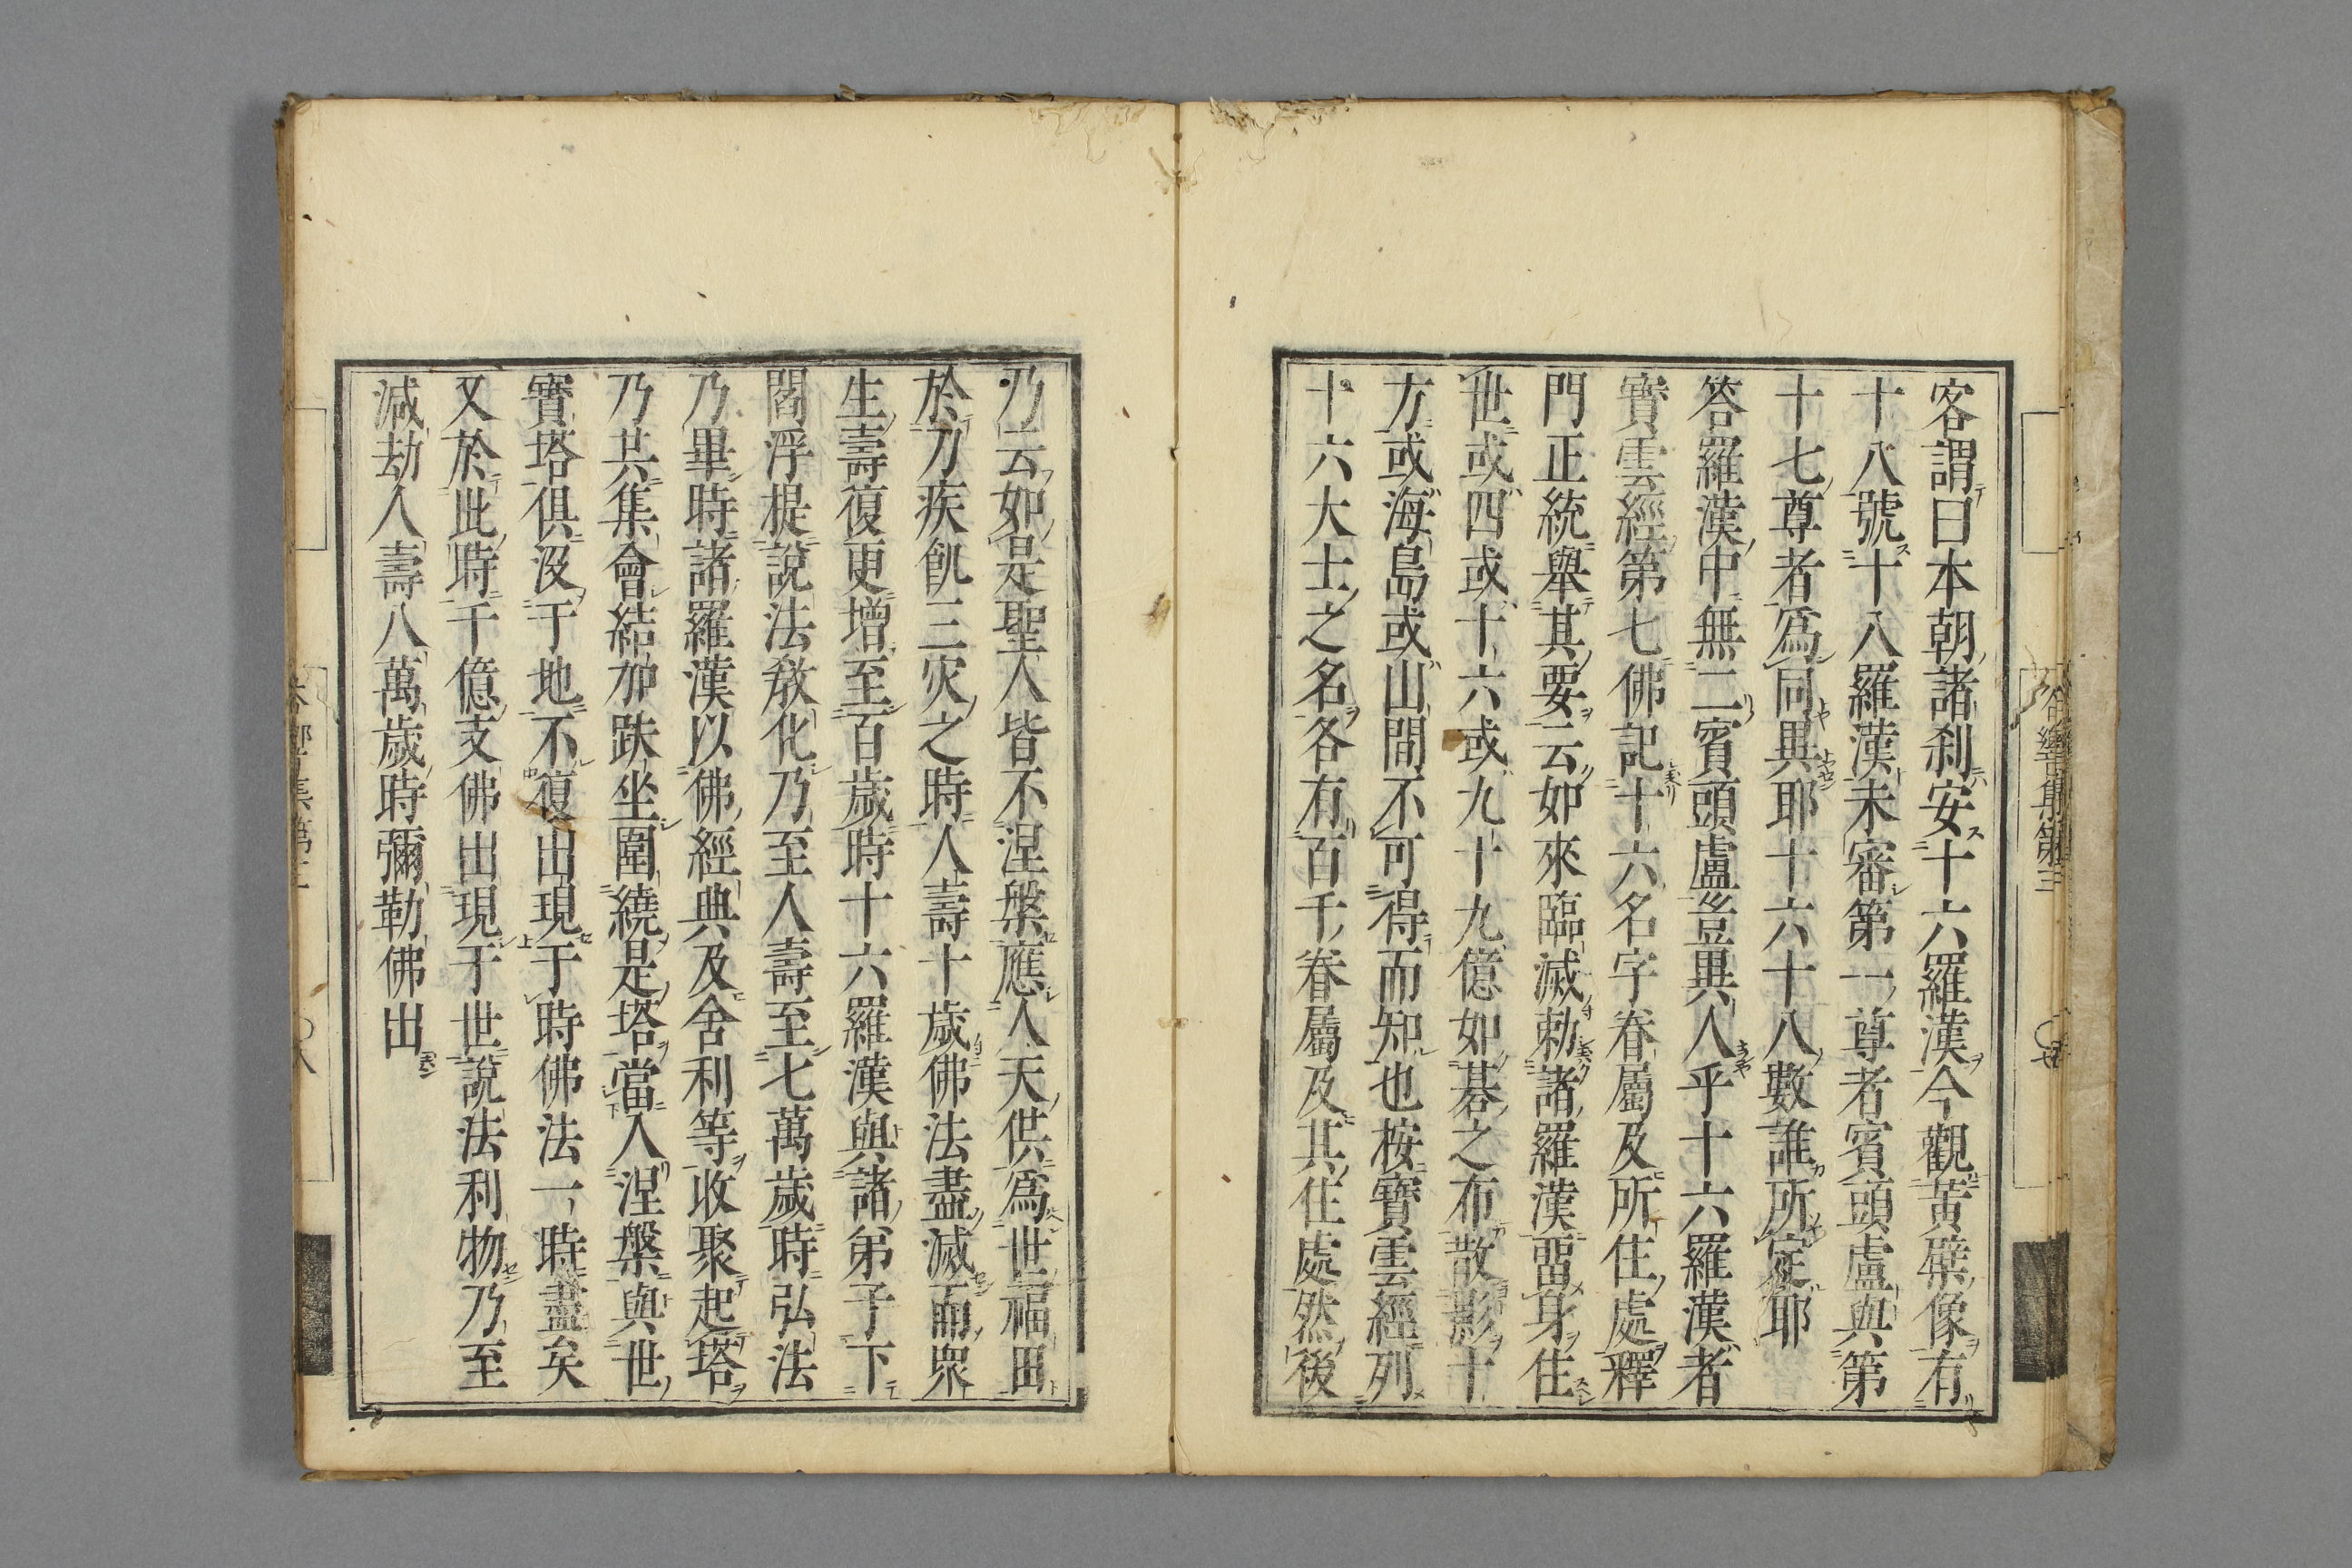 客謂日本朝諸刹安十六羅漢今觀黃檗像有
十八號十八羅漢未審第一尊者賓頭盧與第
十七尊者爲同異耶十六十八數誰所定耶
答羅漢中無二賓頭盧豈異人乎十六羅漢者
寶雲經第七佛記十六名字眷屬及所住處釋
門正統舉其要云如來臨滅勅諸羅漢畱身住
世或四或十六或九十九億如碁之布散影十
方或海島或山間不可得而知也桉寶雲經列
十六大士之名各有百千眷屬及其住處然後
乃云如是聖人皆不涅槃應人天供爲世福田
於刀疾飢三灾之時人壽十歲佛法盡滅而眾
生壽復更增至百歲時十六羅漢與諸弟子下
閻浮提說法敎化乃至人壽至七萬歲時弘法
乃畢時諸羅漢以佛經典及舍利等收聚起塔
乃共集會結加趺坐圍繞是塔當入涅槃與世
寶塔俱沒于地不復出現于時佛法一時盡矣
又於此時千億支佛出現于世說法利物乃至
減劫人壽八萬歲時彌勒佛出